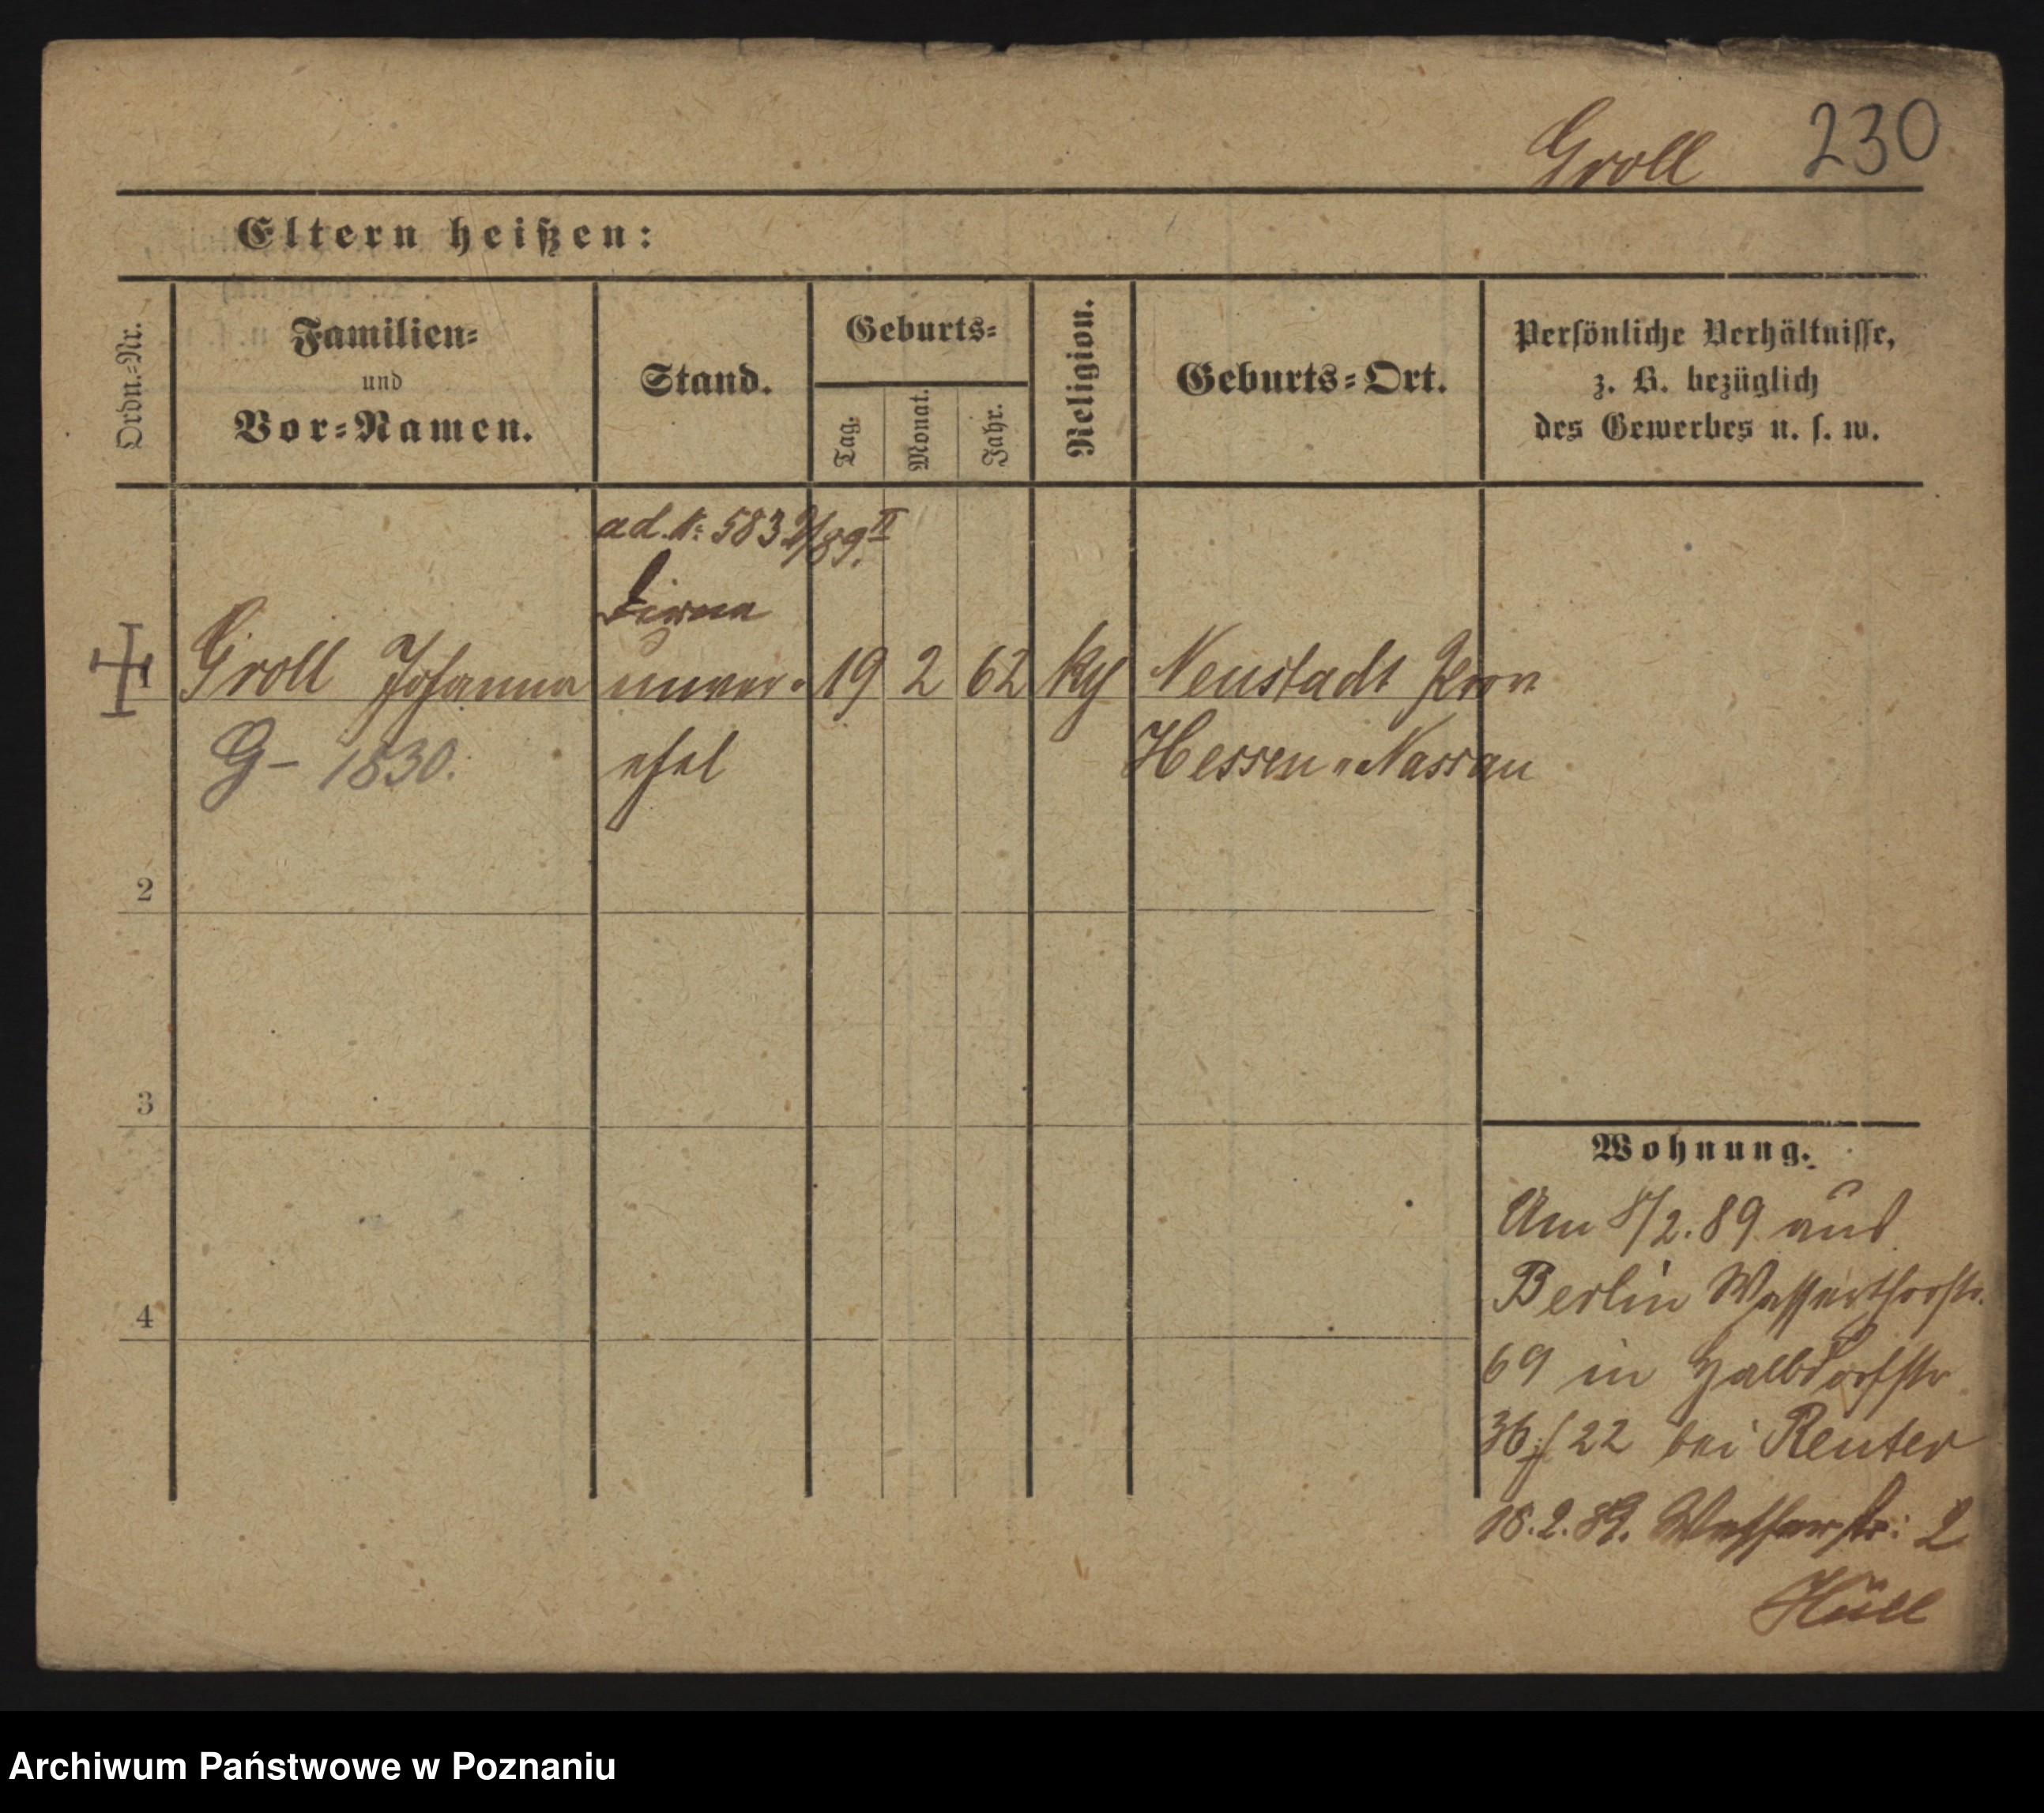 Groll 230
Eltern heißen:
Ordn.-Nr.
Familien-
und
Vor-Namen.
Stand.
Geburts-
Tag.
Monat.
Jahr.
Religion.
Geburts-Ort.
Persönliche Verhältnisse,
z. B. bezüglich
des Gewerbes u. s. w.
ad. N: 5832/89 II
Dirne
1 Groll Johanna unver- 19 2 62 Neustadt
G- 1830. ehel Hessen-Nassau
2
3
4
Wohnung.
Am 8/2.89 aus
Berlin Wasserthorstr.
69 in Halbdorfstr
36 22 bei Reuter
18.2.89. 2